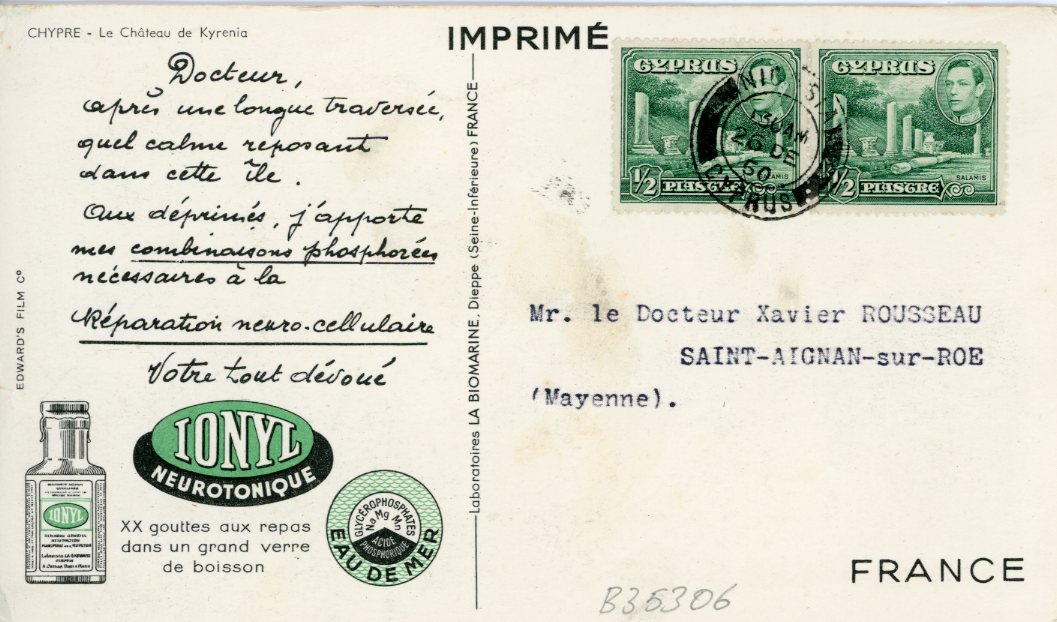 CHYPRE - Le Château de Kyrenia
Docteur,
après une longue traversée,
quel calme reposant
dans cette île.
Aux déprimés, j'apporte
mes combinaisons phosphorées
nécessaires à la
Réparation neuro-cellulaire
Votre tout dévoué
EDWARD'S FILM C°
IONYL
IONYL
NEUROTONIQUE
XX gouttes aux repas
dans un grand verre
de boisson
GLYCÉROPHOSPHATES
Na Mg Mn
ACIDE
PHOSPHORIQUE
EAU DE MER
Laboratoires LA BIOMARINE, Dieppe (Seine-Inférieure) FRANCE
IMPRIMÉ
CYPRUS
SALAMIS
1/2 PIASTRE
CYPRUS
SALAMIS
1/2 PIASTRE
30 AM
26 DE
50
CYPRUS
Mr. le Docteur Xavier ROUSSEAU
SAINT-AIGNAN-sur-ROE
(Mayenne).
FRANCE
B35306